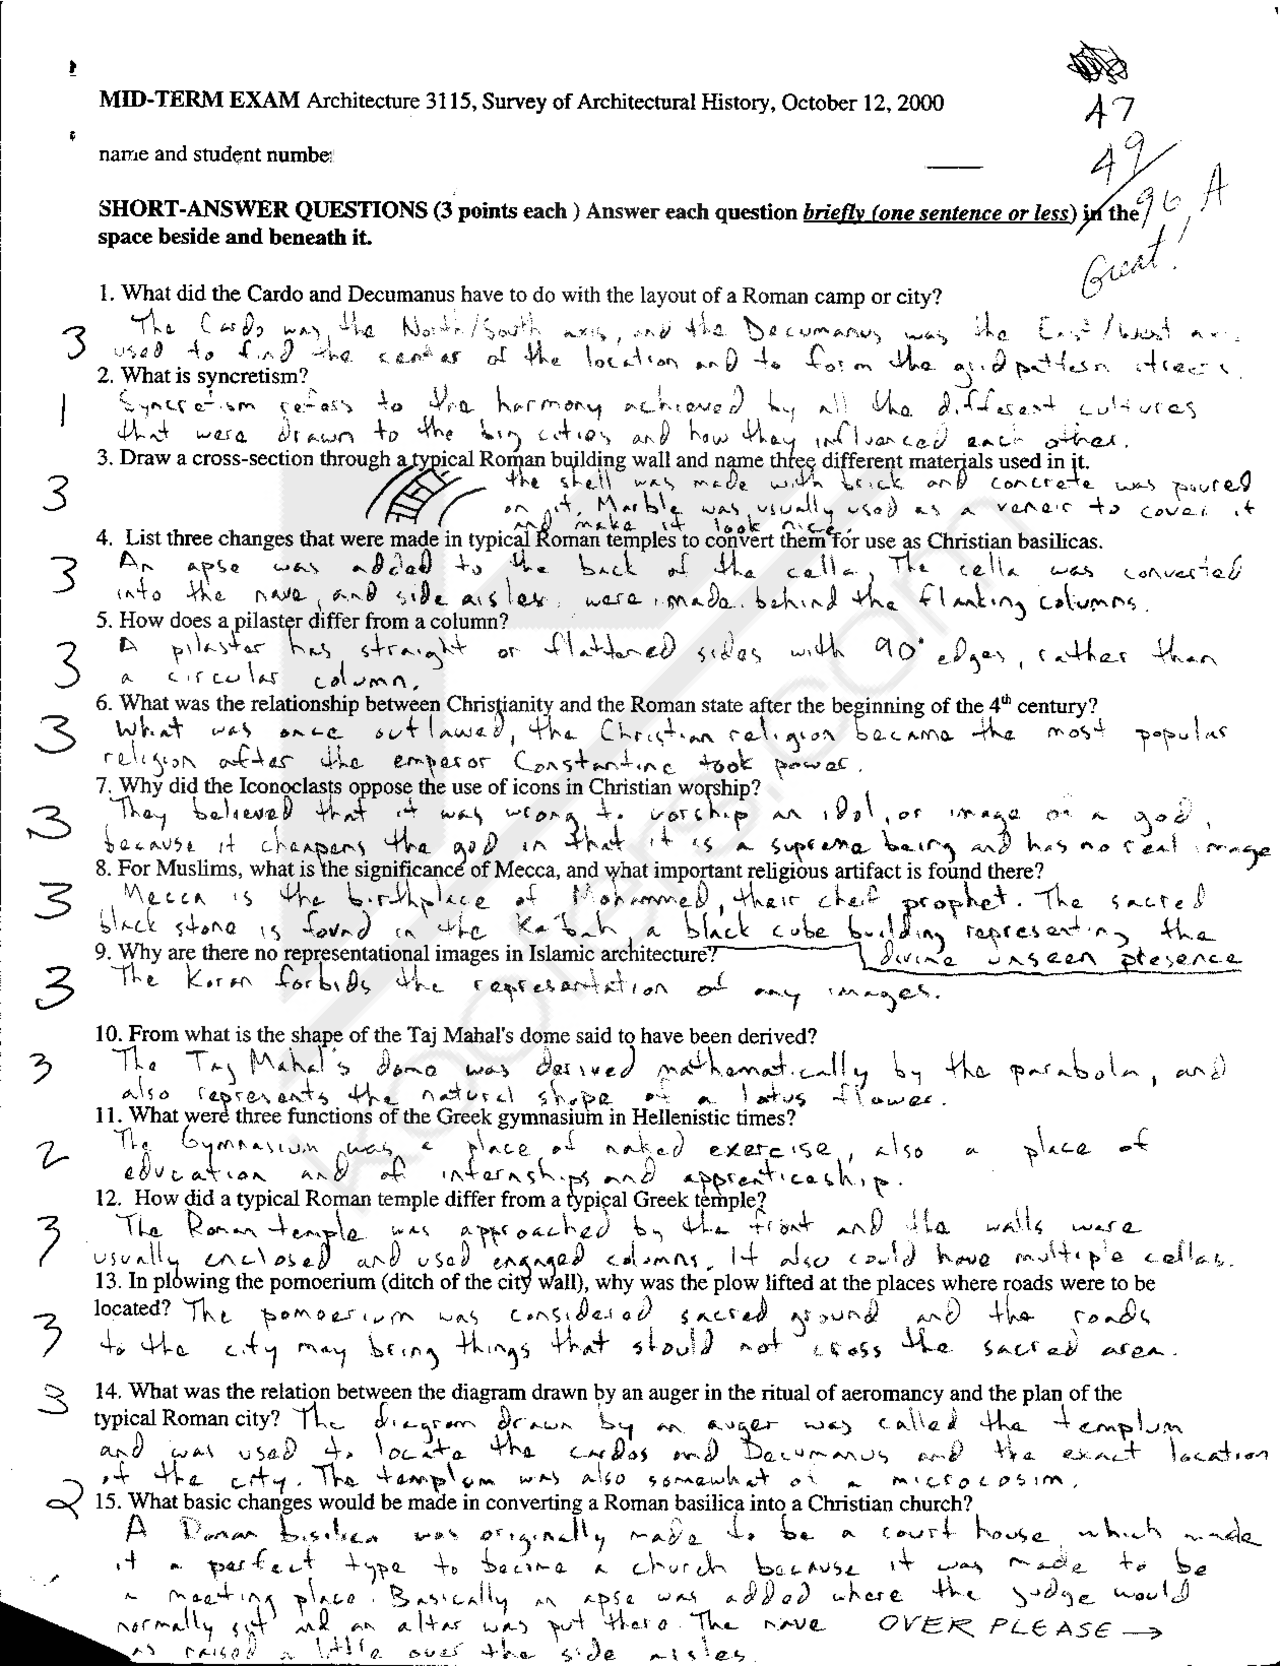 MID-TERM EXAM Architecture 3115, Survey of Architectural History, October 12, 2000
47
name and student number
49
96, A
Great!
SHORT-ANSWER QUESTIONS (3 points each ) Answer each question briefly (one sentence or less) in the
space beside and beneath it.
1. What did the Cardo and Decumanus have to do with the layout of a Roman camp or city?
The Cardo was the North/South axis, and the Decumanus was the East/West
3 used to find the center of the location and to form the grid pattern streets.
2. What is syncretism?
1 Syncretism refers to the harmony achieved by all the different cultures
that were drawn to the big cities and how they influenced each other.
3. Draw a cross-section through a typical Roman building wall and name three different materials used in it.
3 the shell was made with brick and concrete was poured
on it. Marble was usually used as a veneir to cover it
and make it look nice.
4. List three changes that were made in typical Roman temples to convert them for use as Christian basilicas.
3 An apse was added to the back of the cella, The cella was converted
into the nave, and side aisles were made behind the flanking columns.
5. How does a pilaster differ from a column?
3 A pilaster has straight or flattened sides with 90° edges, rather than
a circular column.
6. What was the relationship between Christianity and the Roman state after the beginning of the 4th century?
3 What was once outlawed, the Christian religion became the most popular
religion after the emperor Constantine took power.
7. Why did the Iconoclasts oppose the use of icons in Christian worship?
3 They believed that it was wrong to worship an idol, or image of a god,
because it cheapens the god in that it is a supreme being and has no real image
8. For Muslims, what is the significance of Mecca, and what important religious artifact is found there?
3 Mecca is the birthplace of Mohammed, their cheif prophet. The sacred
black stone is found in the Ka'bah a black cube building representing the
divine unseen presence
9. Why are there no representational images in Islamic architecture?
3 The Koran forbids the representation of any images.
10. From what is the shape of the Taj Mahal's dome said to have been derived?
3 The Taj Mahal's dome was derived mathematically by the parabola, and
also represents the natural shape of a lotus flower.
11. What were three functions of the Greek gymnasium in Hellenistic times?
2 The Gymnasium was a place of naked exercise, also a place of
education and of internships and apprenticeship.
12. How did a typical Roman temple differ from a typical Greek temple?
3 The Roman temple was approached by the front and the walls were
usually enclosed and used engaged columns. It also could have multiple cellas.
13. In plowing the pomoerium (ditch of the city wall), why was the plow lifted at the places where roads were to be
located? The pomoerium was considered sacred ground and the roads
3 to the city may bring things that should not cross the sacred area.
3 14. What was the relation between the diagram drawn by an auger in the ritual of aeromancy and the plan of the
typical Roman city? The diagram drawn by an auger was called the templum
and was used to locate the cardos and Decumanus and the exact location
of the city. The templum was also somewhat of a microcosim.
2 15. What basic changes would be made in converting a Roman basilica into a Christian church?
A Roman basilica was originally made to be a court house which made
it a perfect type to become a church because it was made to be
a meeting place. Basically an apse was added where the judge would
normally sit and an altar was put there. The nave OVER PLEASE →
was raised a little over the side aisles.